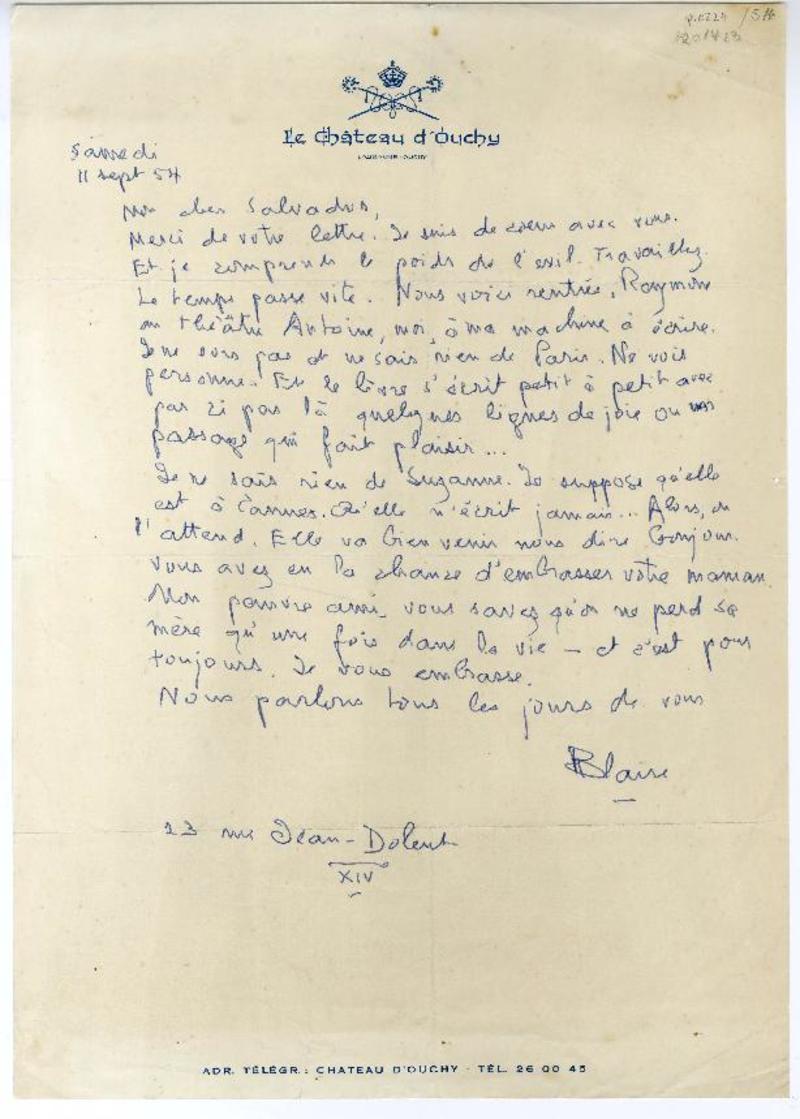 Le Château d'Ouchy
LAUSANNE-OUCHY
Samedi
11 sept 54
Mon cher Salvador,
Merci de votre lettre. Je suis de coeur avec vous.
Et je comprends le poids de l'exil. Travaillez.
Le temps passe vite. Nous voici rentrés, Raymone
au théâtre Antoine, moi, à ma machine à écrire.
Je ne sors pas et ne sais rien de Paris. Ne vois
personne. Et le livre s'écrit petit à petit avec
par ci par là quelques lignes de joie ou un
passage qui fait plaisir...
Je ne sais rien de Suzanne. Je suppose qu'elle
est à Cannes. Elle n'écrit jamais... Alors, on
l'attend. Elle va bien venir nous dire bonjour.
Vous avez eu la chance d'embrasser votre maman.
Mon pauvre ami, vous savez qu'on ne perd sa
mère qu'une fois dans la vie — et c'est pour
toujours. Je vous embrasse.
Nous parlons tous les jours de vous
Blaise
23 rue Jean-Dolent
XIV
ADR. TÉLÉGR.: CHATEAU D'OUCHY - TÉL. 26 00 45